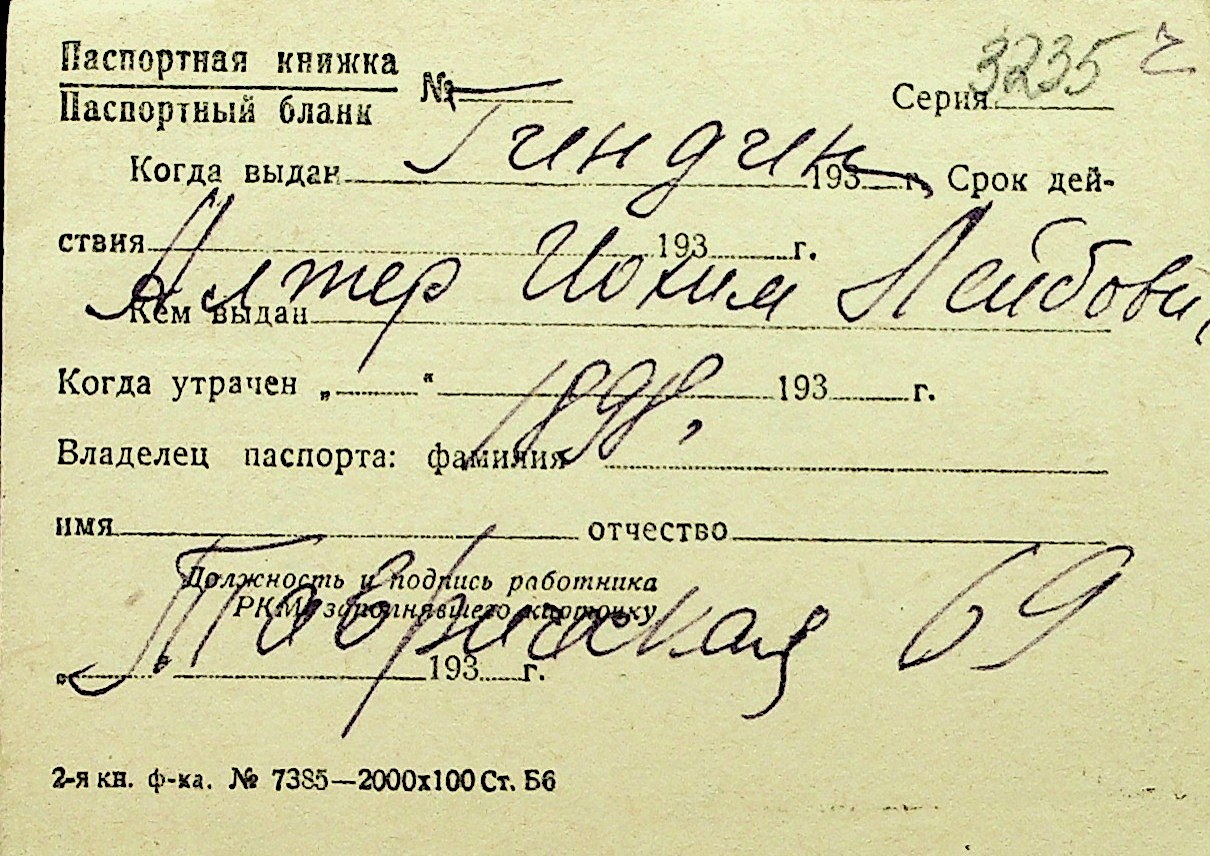 Паспортная книжка
3235 г
Паспортный бланк № Серия
Гиндин
Когда выдан 193 г. Срок дей-
ствия 193 г.
Алтер Иохим Лейбович
Кем выдан
Когда утрачен „ “ 193 г.
1898,
Владелец паспорта: фамилия
имя отчество
Должность и подпись работника
РКМ, заполнявшего карточку
Таврическая 69
„ “ 193 г.
2-я кн. ф-ка. № 7385—2000х100 Ст. Б6